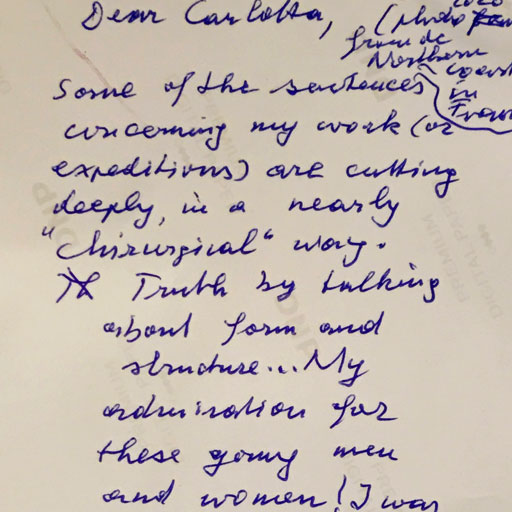 Dear Carlotta, (photo
from de
Northern
coast
in
Some of the sentences
concerning my work (or
expeditions) are cutting
deeply, in a nearly
"chirurgical" way.
Truth by talking
about form and
structure... My
admiration for
these young men
and women! I was